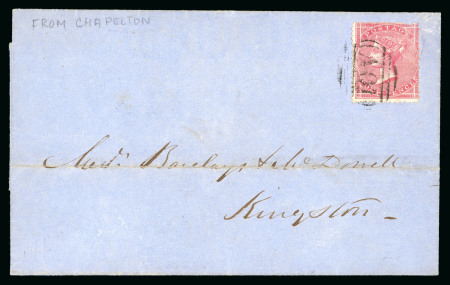 FROM CHAPELTON
POSTAGE
Barclay & McDonell
Kingston